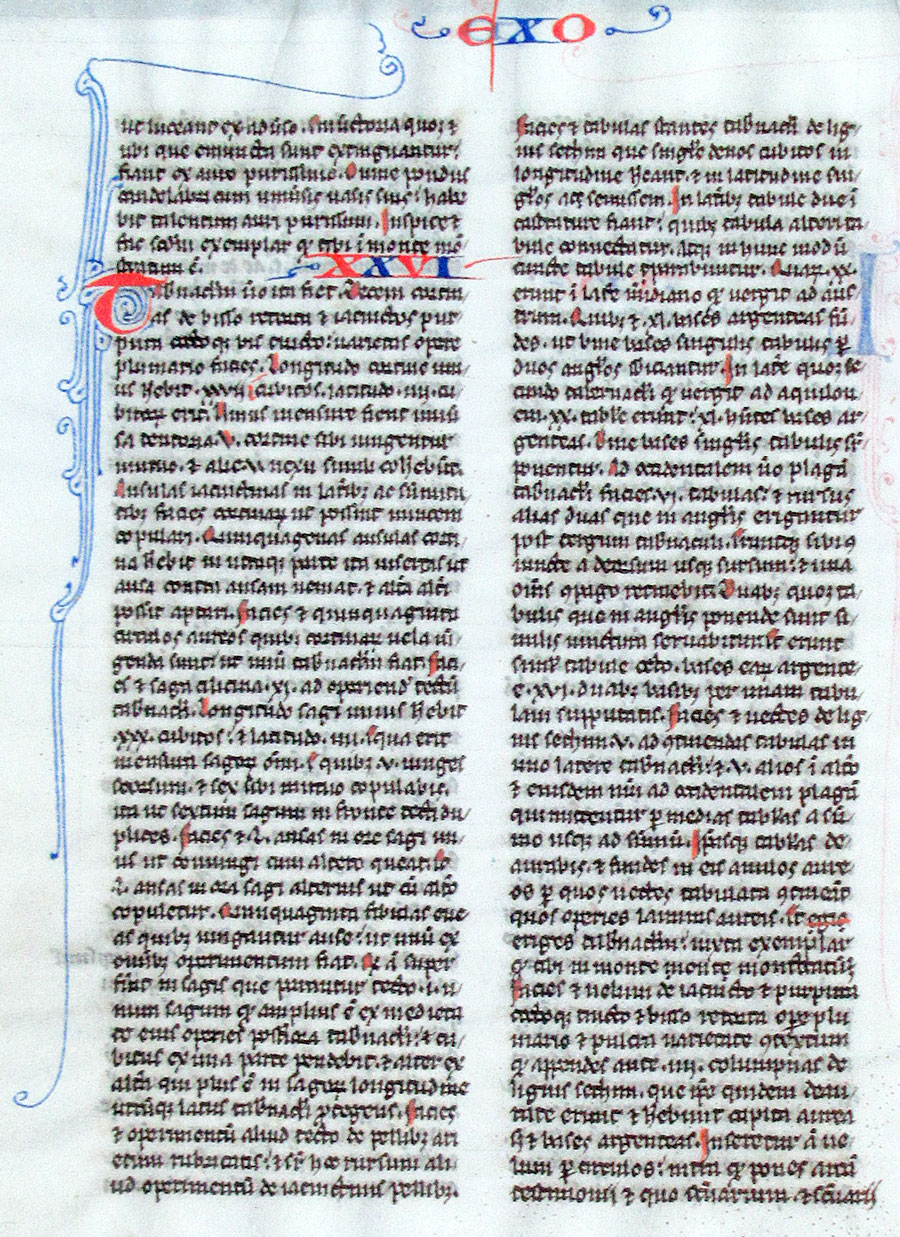 EXO
ut luceant ex adũso. Emũctoria quoq; ⁊
ubi que emuncta sunt extinguantur:
fiant ex auro purissimo. Omne pondus
candelabri cum uniũsis uasis suis: habe
bit talentum auri purissimi. Inspice ⁊
fac scdm exemplar qđ tibi ĩ monte mõ
stratum ē.
XXVI
Tabnaclm ũo ita fiet. Decem cortin
as de bisso retorta ⁊ iacincto ac pur
pura coccoq; bis tincto: uarietas opere
plumario facies. Longitudo cortine uni
us hebit .xxviii. cubitos. latitudo .iiii. cu
bitoꝝ erit. Unius mensure fient uniũ
sa tentoria. V. cortine sibi iungentur
mutuo. ⁊ alie .v. nexu simili cohebũt.
Ansulas iacinctinas in lat̾ib; ac sũmita
tib; facies cortinaꝝ ut possint inuicem
copulari. Quinquagenas ansulas corti
na hebit in utraq; parte ita insertas ut
ansa contra ansam ueniat. ⁊ alt̾a alt̾i
possit aptari. Facies ⁊ quinquaginta
circulos aureos quib; cortinaꝝ uela iũ
genda sunt: ut unũ tabnaclm fiat. Faci
es ⁊ saga cilicina .xi. ad operiend tectũ
tabnacli. Longitudo sagi unius hebit
.xxx. cubitos: ⁊ latitudo .iiii. Equa erit
mensura sagoꝝ oĩm. E quib; .v. iunges
seorsum. ⁊ sex sibi mutuo copulabis.
ita ut sextum sagum in fronte tecti du
plices. Facies ⁊ .L. ansas in ore sagi un
ius ut coniungi cum altero queat. ⁊
.L. ansas in ora sagi alterius ut cũ alt̾o
copuletur. Quinquaginta fibulas ene
as quib; iungantur anse: ut unũ ex
omib; operimentum fiat. Qđ ā super
fũit in sagis que parantur tecto .i. u
num sagum qđ amplius ē ex medieta
te eius operies postiora tabnacli: ⁊ cu
bitus ex una parte pendebit. ⁊ alter ex
alt̾a qui plus ē in sagoꝝ longitudine
utrũq; latus tabnacli ꝓtegens. Facies
⁊ operimentũ aliud tecto de pellib; ari
etum rubricatis: ⁊ sr̃ hoc rursum ali
ud operimentũ de iacinctinis pellib;.
Facies ⁊ tabulas stantes tabnacli de lig
nis sethim que singl̃e denos cubitos in
longitudine heant. ⁊ in latitudine sin
gl̃os ac semissem. In lat̾ib; tabule due ĩ
castrature fiant: quib; tabula alteri ta
bule connectatur. atq; in hunc modũ
cuncte tabule parabuntur. Quaꝝ .xx.
erunt ĩ lat̾e m̃idiano qđ uergit ad aus
trum. Quib; ⁊ .xl. bases argenteas fũ
des. ut bine bases singulis tabulis ꝑ
duos angl̃os subiciantur. In lat̾e quoq; se
cundo tabernacli qđ uergit ad aquilon
em .xx. table erunt: .xl. hñtes bases ar
genteas. Bine bases singl̃is tabulis sr̃
ponentur. Ad occidentalem ũo plagã
tabnacli facies .vi. tabulas: ⁊ rursus
alias duas que in angl̃is erigantur
post tergum tabnaculi. Eruntq; sibi 9
iuncte a deorsum usq; sursum: ⁊ una
oĩns 9pago retinebit. Duab; quoq; ta
bulis que in angl̃is ponende sunt si
milis iunctura seruabitur. Et erunt
simł tabule octo. bases eaꝝ argente
e .xvi. duab; basib; per unam tabu
lam supputatis. Facies ⁊ uectes de lig
nis sethim .v. ad 9tinendas tabulas in
uno latere tabnacli: ⁊ .v. alios ĩ alt̾o
⁊ eiusdem nũi ad occidentalem plagã
qui mittentur ꝑ medias tablas a sũ
mo usq; ad sũmũ. Ipasq; tablas de
aurabis. ⁊ fundes in eis anulos aure
os ꝑ quos uectes tabulata 9tineãt
quos operies laminis aureis. Et
eriges tabnaclm: iuxta exemplar
qđ tibi in monte monte monstratũ ē
Facies ⁊ uelum de iacincto ⁊ purpura
coccoq; tincto ⁊ bisso retorta oꝑe plu
mario ⁊ pulcra uarietate 9textum
qđ appendes ante .iiii. columpnas de
lignis sethim. que ipe quidem deau
rate erunt ⁊ hebunt capita aurea
sꝫ ⁊ bases argenteas. Inseretur ā ue
lum ꝑ circulos: intra qđ pones arcã
testimonii ⁊ quo scũarium. ⁊ scũarii